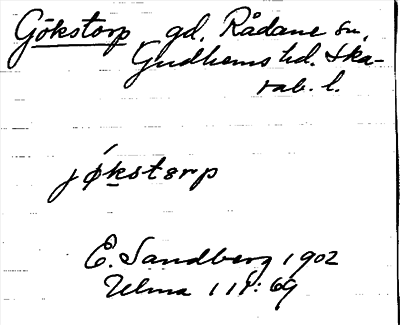 Gökstorp gd. Rådane sn,
Gudhems hd. Ska-
rab. l.
jǿkstɔrp
E. Sandberg 1902
Ulma 111:69